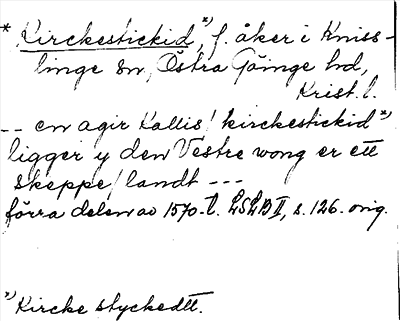 * Kirckestickid *), f. åker i Kniss-
linge sn, Östra Göinge hd,
Krist. l.
-- en agir kallis / kirckestickid *)
ligger y den Vestre wong er ett
skeppe / landt ---
förra delen av 1570-t. LSLB II, s. 126. orig.
*) Kircke styckedtt.